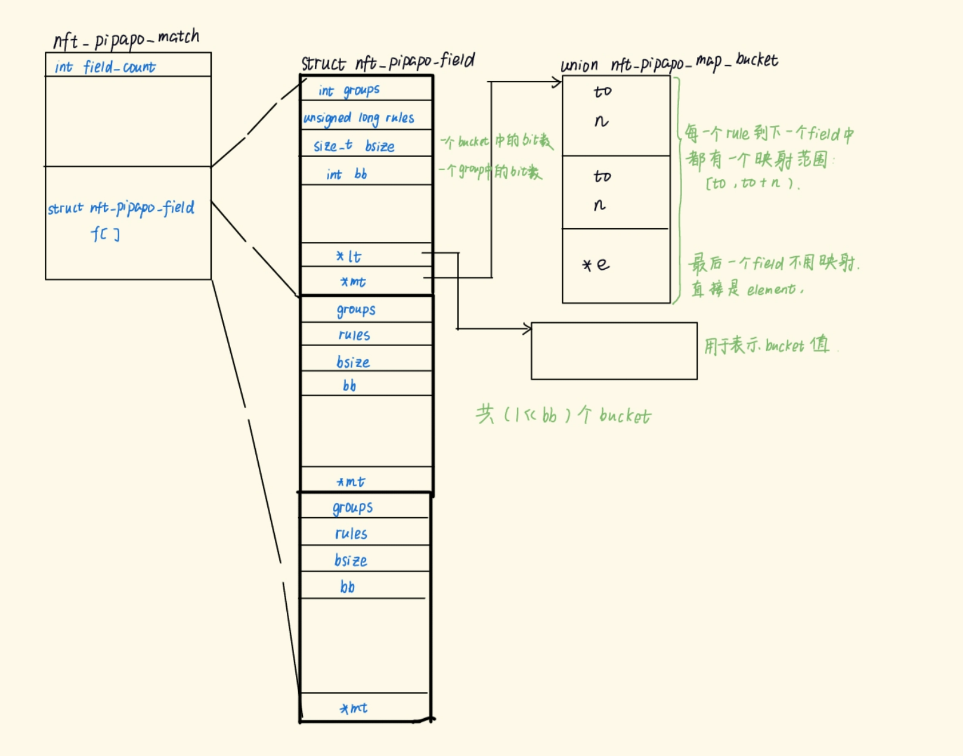 nft_pipapo_match
int field_count
struct nft_pipapo_field
f[]
struct nft_pipapo_field
int groups
unsigned long rules
size_t bsize
int bb
*lt
*mt
groups
rules
bsize
bb
*mt
groups
rules
bsize
bb
*mt
一个bucket中的bit数
一个group中的bit数
union nft_pipapo_map_bucket
to
n
to
n
*e
每一个rule到下一个field中
都有一个映射范围:
[to, to+n).
最后一个field不用映射.
直接是element.
用于表示.bucket值.
共(1<<bb)个bucket